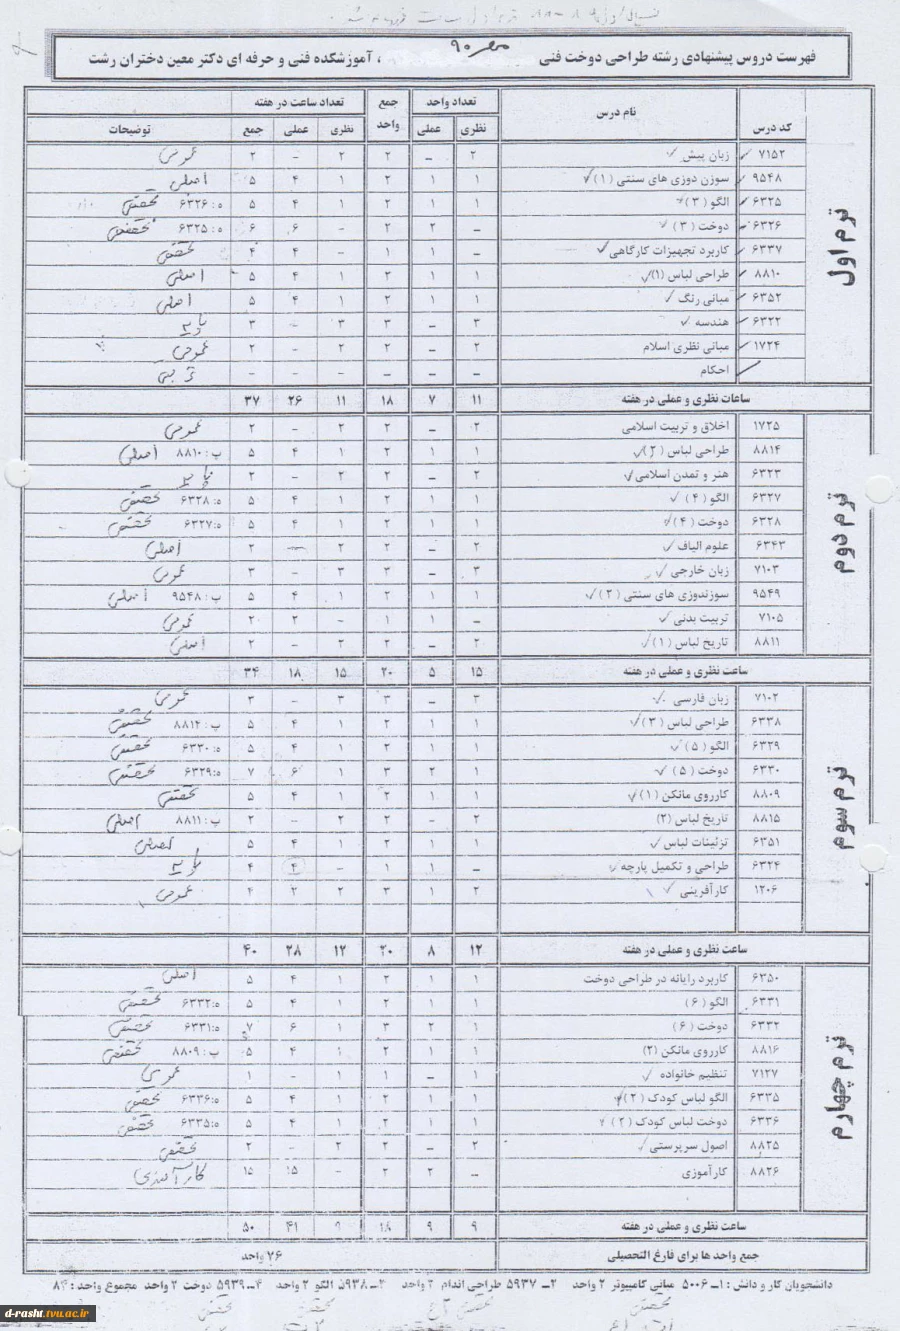 مهر ۹۰
فهرست دروس پیشنهادی رشته طراحی دوخت فنی ، آموزشکده فنی و حرفه ای دکتر معین دختران رشت
کد درس نام درس تعداد واحد جمع واحد تعداد ساعت در هفته توضیحات
نظری عملی نظری عملی جمع
ترم اول
۷۱۵۲ زبان پیش ۲ – ۲ ۲ – ۲ عمومی
۹۵۴۸ سوزن دوزی های سنتی (۱) ۱ ۱ ۲ ۱ ۴ ۵ اصلی
۶۳۲۵ الگو (۳) ۱ ۱ ۲ ۱ ۴ ۵ ه: ۶۳۲۶ تخصصی
۶۳۲۶ دوخت (۳) – ۲ ۲ – ۶ ۶ ه: ۶۳۲۵ تخصصی
۶۳۳۷ کاربرد تجهیزات کارگاهی – ۱ ۱ – ۴ ۴ تخصصی
۸۸۱۰ طراحی لباس (۱) ۱ ۱ ۲ ۱ ۴ ۵ اصلی
۶۳۵۲ مبانی رنگ ۱ ۱ ۲ ۱ ۴ ۵ اصلی
۶۳۲۲ هندسه ۳ – ۳ ۳ – ۳ پایه
۱۷۲۴ مبانی نظری اسلام ۲ – ۲ ۲ – ۲ عمومی
احکام – – – – – –
ساعات نظری و عملی در هفته ۱۱ ۷ ۱۸ ۱۱ ۲۶ ۳۷
ترم دوم
۱۷۲۵ اخلاق و تربیت اسلامی ۲ – ۲ ۲ – ۲ عمومی
۸۸۱۴ طراحی لباس (۲) ۱ ۱ ۲ ۱ ۴ ۵ پ: ۸۸۱۰ اصلی
۶۳۲۳ هنر و تمدن اسلامی ۲ – ۲ ۲ – ۲ پایه
۶۳۲۷ الگو (۴) ۱ ۱ ۲ ۱ ۴ ۵ ه: ۶۳۲۸ تخصصی
۶۳۲۸ دوخت (۴) ۱ ۱ ۲ ۱ ۴ ۵ ه: ۶۳۲۷ تخصصی
۶۳۴۳ علوم الیاف ۲ – ۲ ۲ – ۲ اصلی
۷۱۰۳ زبان خارجی ۳ – ۳ ۳ – ۳ عمومی
۹۵۴۹ سوزندوزی های سنتی (۲) ۱ ۱ ۲ ۱ ۴ ۵ پ: ۹۵۴۸ اصلی
۷۱۰۵ تربیت بدنی – ۱ ۱ – ۲ ۲ عمومی
۸۸۱۱ تاریخ لباس (۱) ۲ – ۲ ۲ – ۲ اصلی
ساعت نظری و عملی در هفته ۱۵ ۵ ۲۰ ۱۵ ۱۸ ۳۴
ترم سوم
۷۱۰۲ زبان فارسی ۳ – ۳ ۳ – ۳ عمومی
۶۳۳۸ طراحی لباس (۳) ۱ ۱ ۲ ۱ ۴ ۵ پ: ۸۸۱۴ تخصصی
۶۳۲۹ الگو (۵) ۱ ۱ ۲ ۱ ۴ ۵ ه: ۶۳۳۰ تخصصی
۶۳۳۰ دوخت (۵) ۱ ۲ ۳ ۱ ۶ ۷ ه: ۶۳۲۹ تخصصی
۸۸۰۹ کارروی مانکن (۱) ۱ ۱ ۲ ۱ ۴ ۵ تخصصی
۸۸۱۵ تاریخ لباس (۲) ۲ – ۲ ۲ – ۲ پ: ۸۸۱۱ اصلی
۶۳۵۱ تزئینات لباس ۱ ۱ ۲ ۱ ۴ ۵ اصلی
۶۳۲۴ طراحی و تکمیل پارچه – ۱ ۱ – ۴ ۴ پایه
۱۲۰۶ کارآفرینی ۲ ۱ ۳ ۲ ۲ ۴ عمومی
ساعت نظری و عملی در هفته ۱۲ ۸ ۲۰ ۱۲ ۲۸ ۴۰
ترم چهارم
۶۳۵۰ کاربرد رایانه در طراحی دوخت ۱ ۱ ۲ ۱ ۴ ۵ اصلی
۶۳۳۱ الگو (۶) ۱ ۱ ۲ ۱ ۴ ۵ ه: ۶۳۳۲ تخصصی
۶۳۳۲ دوخت (۶) ۱ ۲ ۳ ۱ ۶ ۷ ه: ۶۳۳۱ تخصصی
۸۸۱۶ کارروی مانکن (۲) ۱ ۱ ۲ ۱ ۴ ۵ پ: ۸۸۰۹ تخصصی
۷۱۲۷ تنظیم خانواده ۱ – ۱ ۱ – ۱ عمومی
۶۳۳۵ الگو لباس کودک (۲) ۱ ۱ ۲ ۱ ۴ ۵ ه: ۶۳۳۶ تخصصی
۶۳۳۶ دوخت لباس کودک (۲) ۱ ۱ ۲ ۱ ۴ ۵ ه: ۶۳۳۵ تخصصی
۸۸۲۵ اصول سرپرستی ۲ – ۲ ۲ – ۲ تخصصی
۸۸۲۶ کارآموزی – ۲ ۲ – ۱۵ ۱۵ کارآموزی
ساعت نظری و عملی در هفته ۹ ۹ ۱۸ ۹ ۴۱ ۵۰
جمع واحد ها برای فارغ التحصیلی ۷۶ واحد
دانشجویان کار و دانش : ۱ـ ۵۰۰۶ مبانی کامپیوتر ۲ واحد ۲ـ ۵۹۳۷ طراحی اندام ۲ واحد ۳ـ ۵۹۳۸ الگو ۲ واحد ۴ـ ۵۹۳۹ دوخت ۲ واحد مجموع واحد : ۸۴
d-rasht.tvu.ac.ir